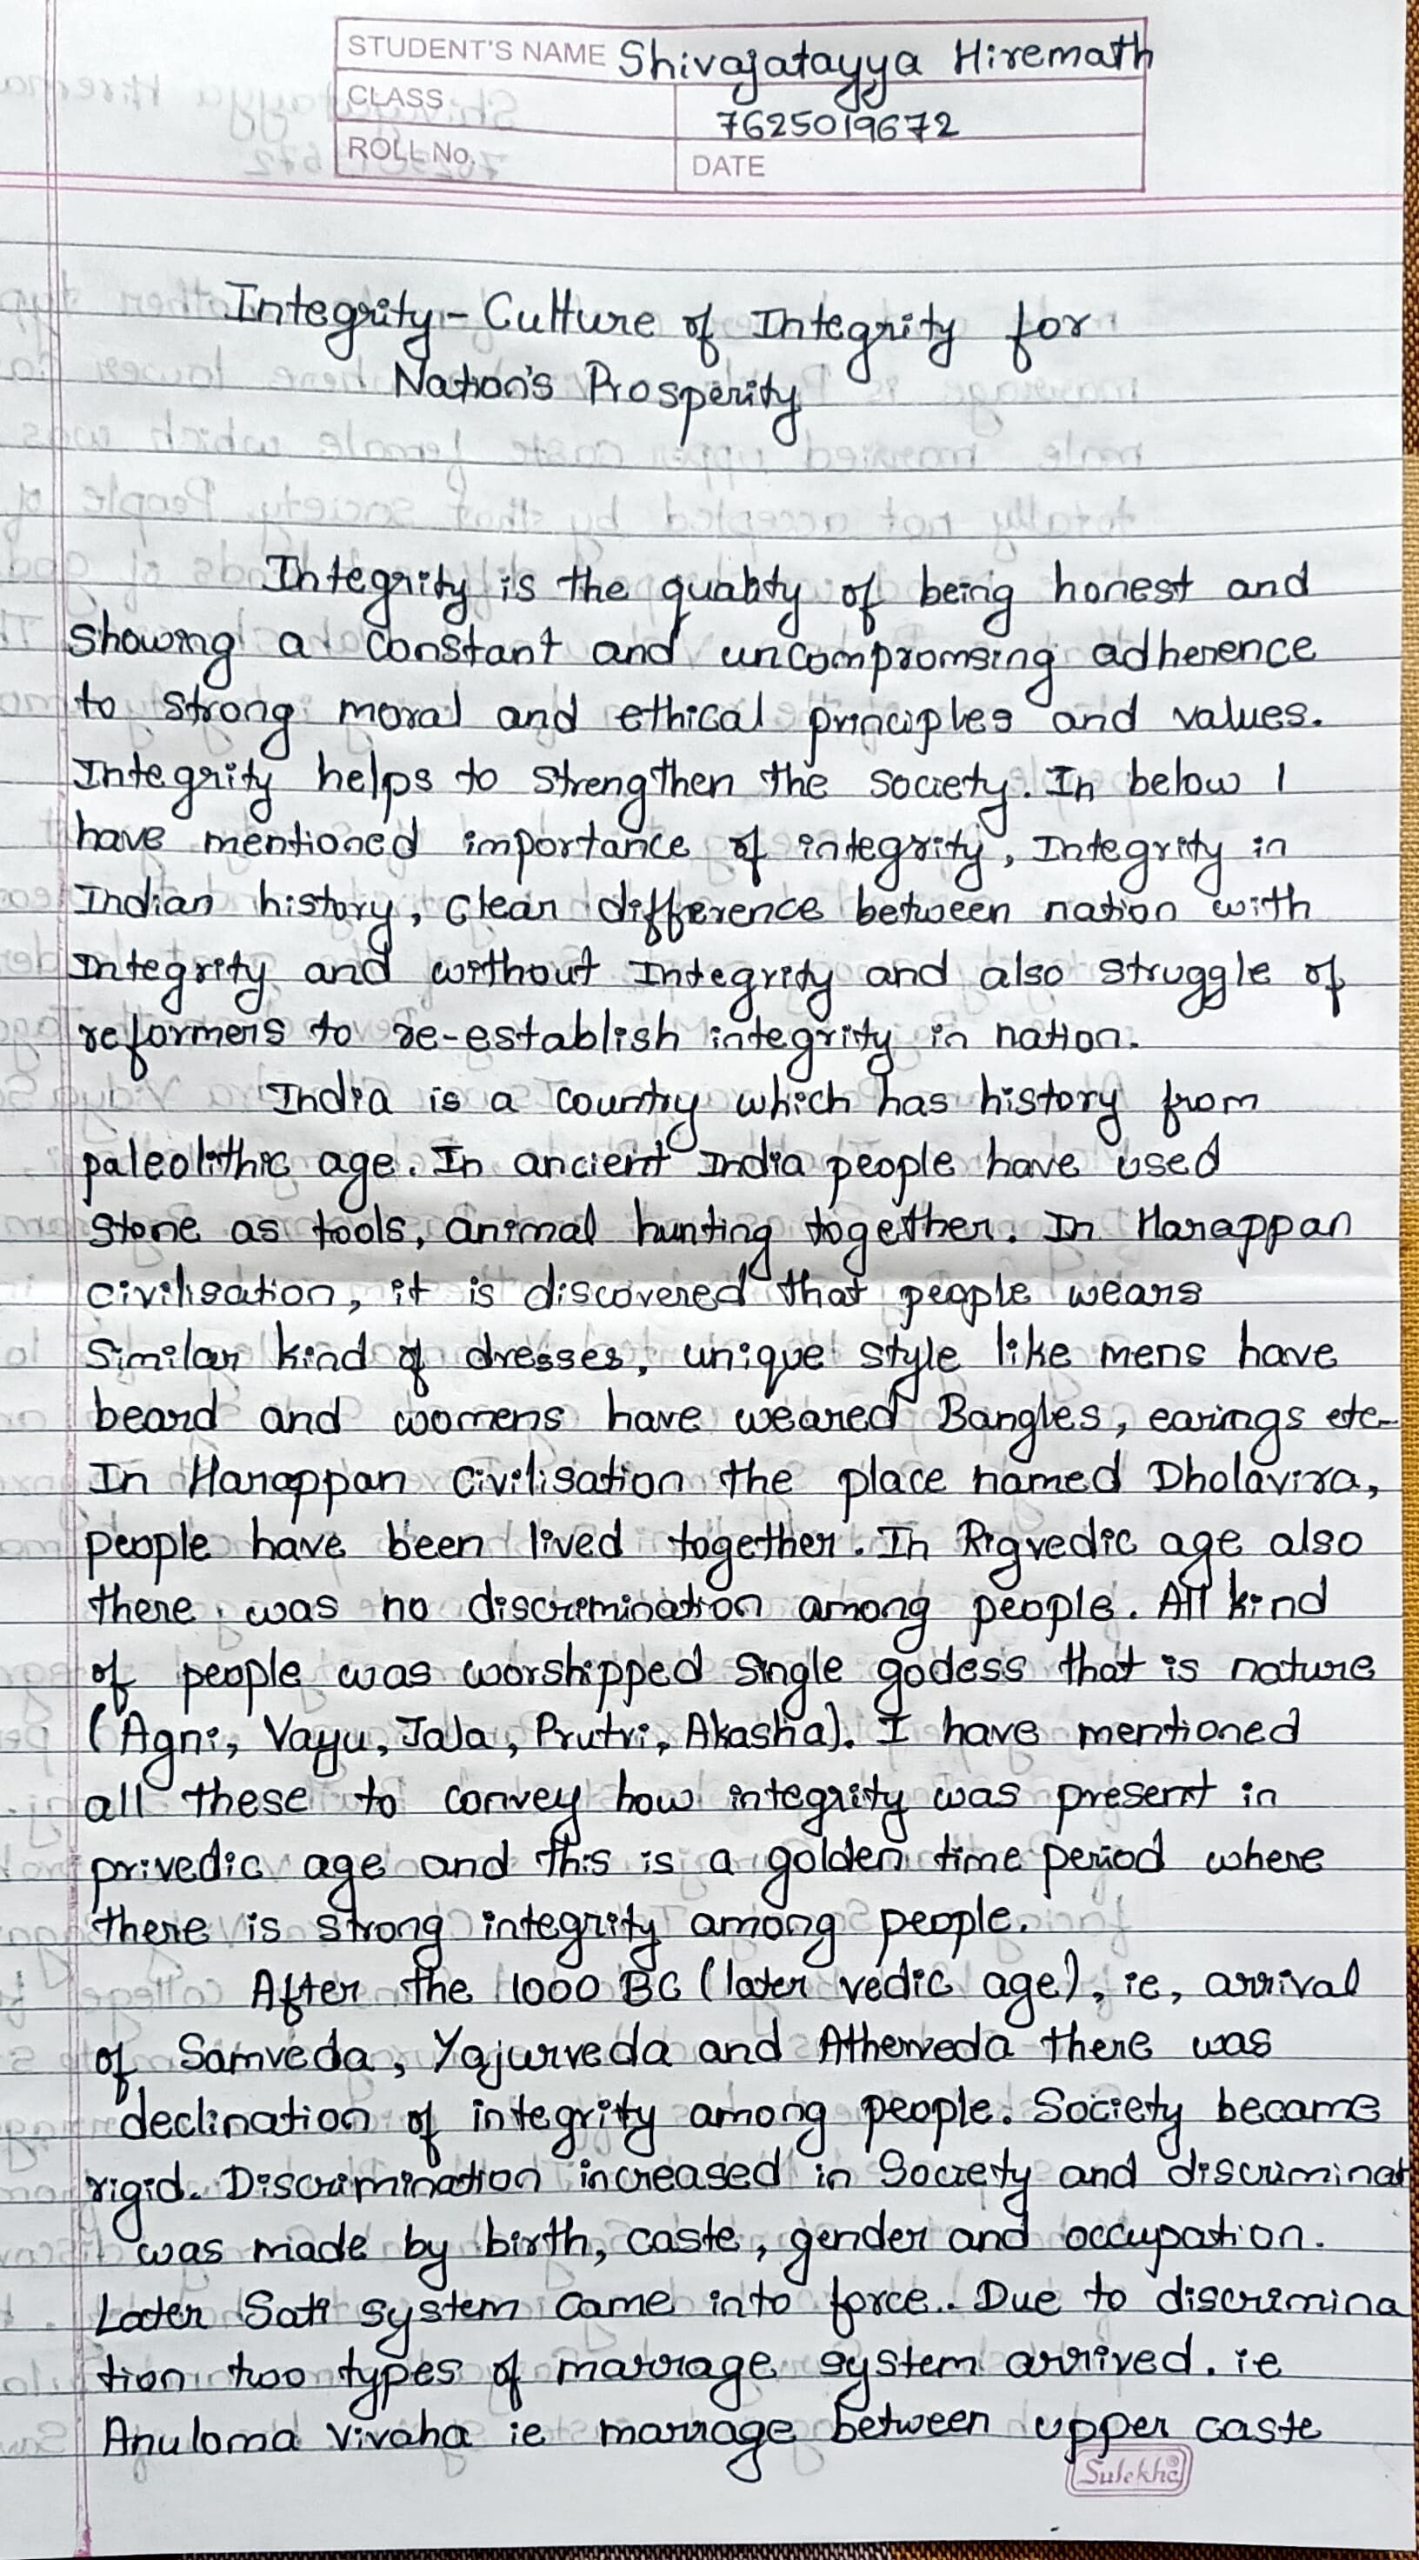 STUDENT'S NAME Shivajatayya Hiremath
CLASS
7625019672
ROLL No.
DATE
Integrity - Culture of Integrity for
Nation's Prosperity
Integrity is the quality of being honest and
showing a constant and uncompromsing adherence
to strong moral and ethical principles and values.
Integrity helps to strengthen the society. In below I
have mentioned importance of integrity, Integrity in
Indian history, Clear difference between nation with
Integrity and without Integrity and also struggle of
reformers to re-establish integrity in nation.
India is a country which has history from
paleolithic age. In ancient India people have used
stone as tools, animal hunting together. In Harappan
civilisation, it is discovered that people wears
similar kind of dresses, unique style like mens have
beard and womens have weared Bangles, earings etc-
In Harappan Civilisation the place named Dholavira,
people have been lived together. In Rigvedic age also
there was no discrimination among people. All kind
of people was worshipped single godess that is nature
(Agni, Vayu, Jala, Prutvi, Akasha). I have mentioned
all these to convey how integrity was present in
privedic age and this is a golden time period where
there is strong integrity among people.
After the 1000 BC (later vedic age), ie, arrival
of Samveda, Yajurveda and Atherveda there was
declination of integrity among people. Society became
rigid. Discrimination increased in Society and discriminat
was made by birth, caste, gender and occupation.
Later Sati system came into force.. Due to discrimina
tion two types of marriage system arrived. ie
Anuloma Vivaha ie marriage between upper caste
Sulekha